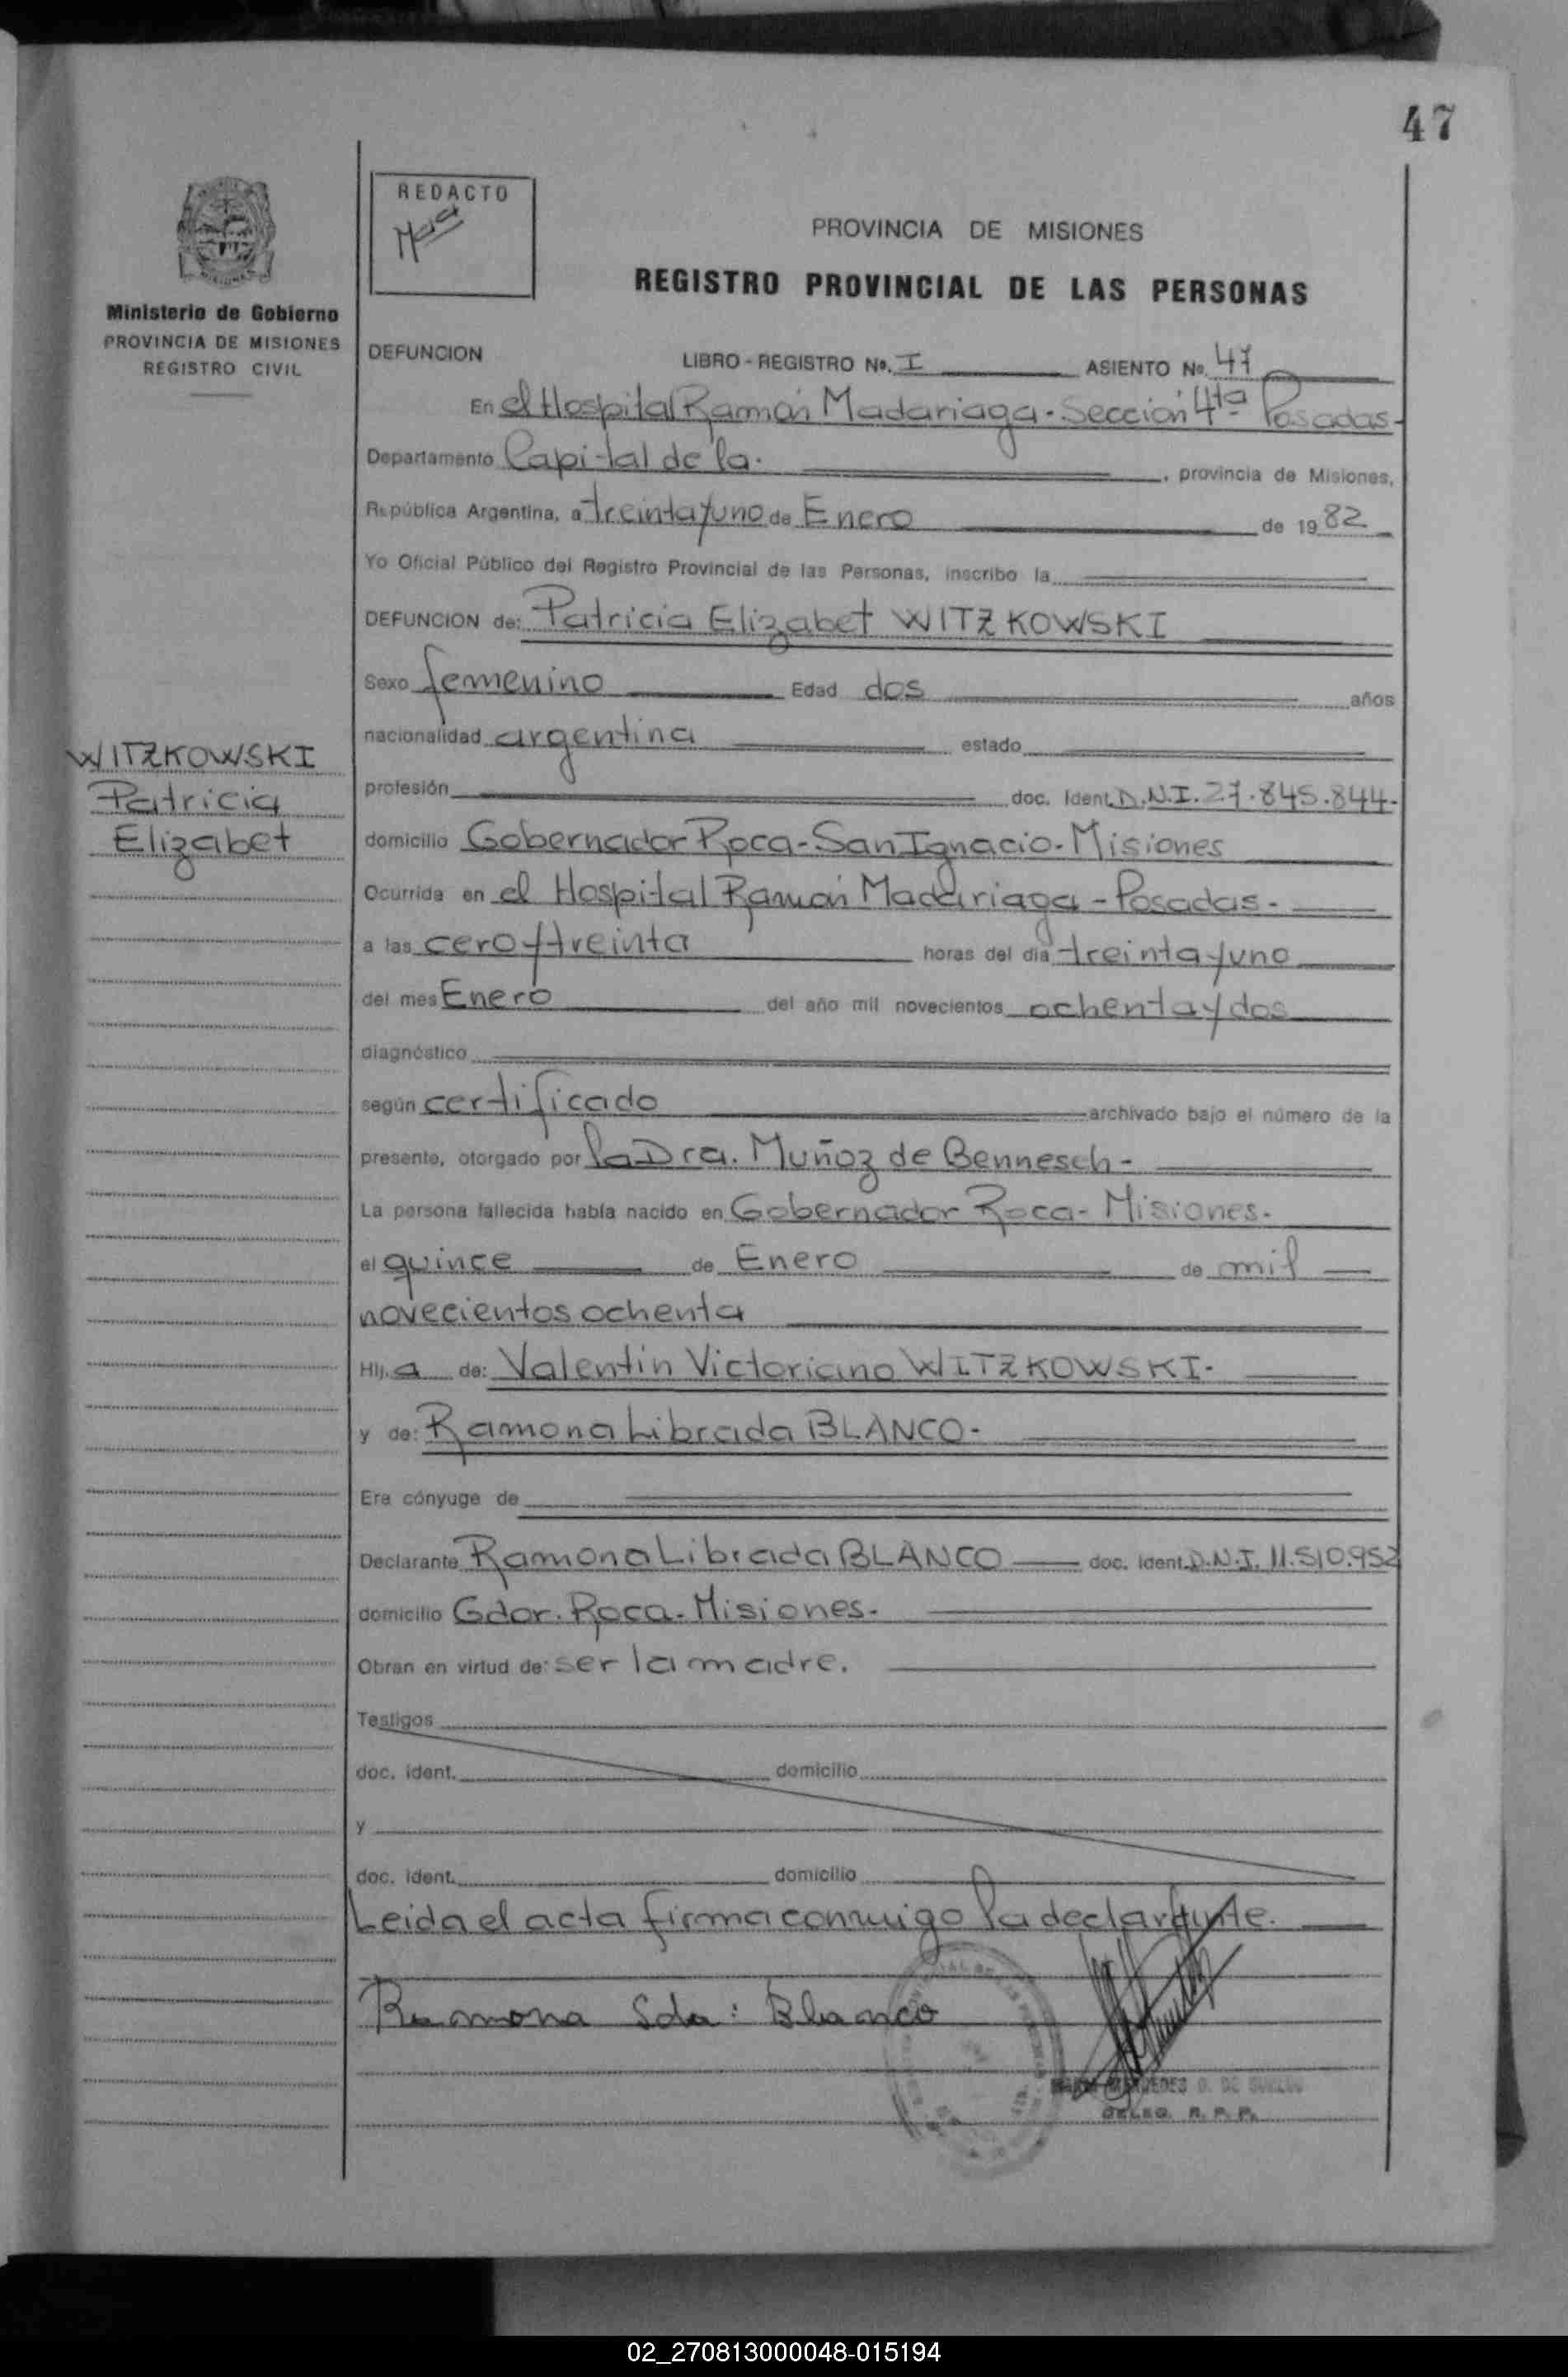 47
REDACTO
PROVINCIA DE MISIONES
REGISTRO PROVINCIAL DE LAS PERSONAS
Ministerio de Gobierno
PROVINCIA DE MISIONES
REGISTRO CIVIL
DEFUNCION LIBRO - REGISTRO No. I ASIENTO No. 47
En el Hospital Ramón Madariaga - Sección 4ta Posadas -
Departamento Capital de la. , provincia de Misiones,
República Argentina, a treinta y uno de Enero de 1982
Yo Oficial Público del Registro Provincial de las Personas, inscribo la
DEFUNCION de: Patricia Elizabet WITZKOWSKI
Sexo femenino Edad dos años
nacionalidad argentina estado
WITZKOWSKI
Patricia
Elizabet
profesión doc. Ident. D.N.I. 27.845.844-
domicilio Gobernador Roca - San Ignacio - Misiones
Ocurrida en el Hospital Ramón Madariaga - Posadas -
a las cero y treinta horas del día treinta y uno
del mes Enero del año mil novecientos ochenta y dos
diagnóstico
según certificado archivado bajo el número de la
presente, otorgado por la Dra. Muñoz de Bennesch -
La persona fallecida había nacido en Gobernador Roca - Misiones -
el quince de Enero de mil
novecientos ochenta
Hij a de: Valentin Victoriano WITZKOWSKI -
y de: Ramona Librada BLANCO -
Era cónyuge de
Declarante Ramona Librada BLANCO doc. ident. D.N.I. 11.510.952
domicilio Gdor. Roca - Misiones -
Obran en virtud de: ser la madre.
Testigos
doc. ident. domicilio
y
doc. ident. domicilio
Leida el acta firma conmigo la declarante.
Ramona Sda: Blanco
DELEG. R. P. P.
02_270813000048-015194